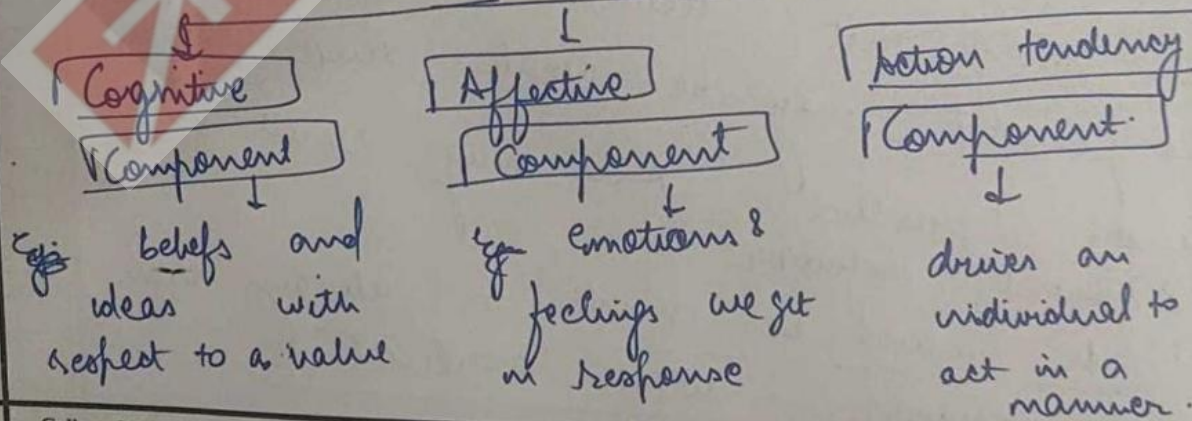 Cognitive
Component
Eg: beliefs and
ideas with
respect to a value
Affective
Component
Eg emotions &
feelings we get
in response
Action tendency
Component.
drives an
individual to
act in a
manner.